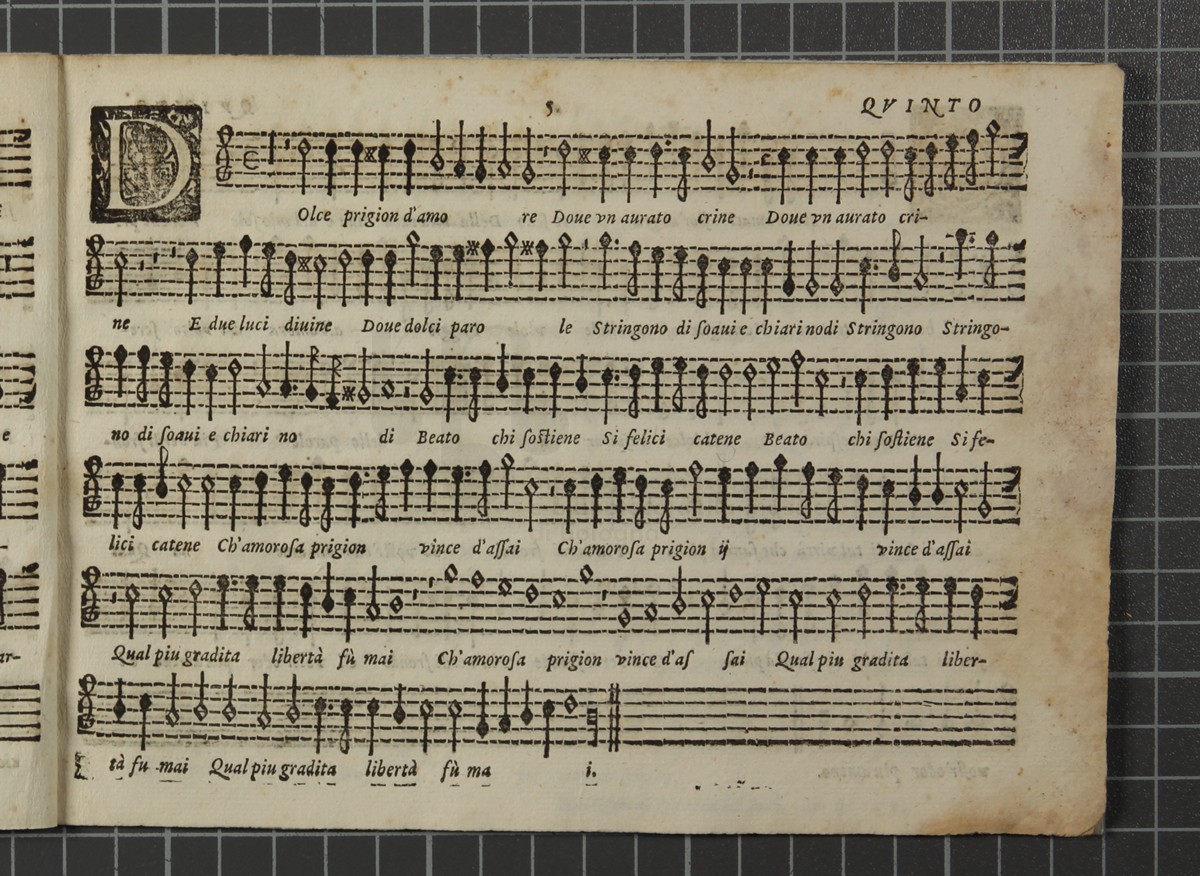 5. QVINTO
DOlce prigion d'amo re Doue vn aurato crine Doue vn aurato cri-
ne E due luci diuine Doue dolci paro le Stringono di ſoaui e chiari nodi Stringono Stringo-
no di ſoaui e chiari no di Beato chi ſoſtiene Si felici catene Beato chi ſoſtiene Si fe-
lici catene Ch'amoroſa prigion vince d'aſſai Ch'amoroſa prigion ij vince d'aſſai
Qual piu gradita libertà fù mai Ch'amoroſa prigion vince d'aſ ſai Qual piu gradita liber-
tà fu mai Qual piu gradita libertà fù ma i.